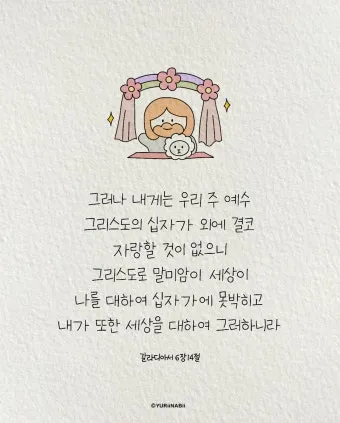 그러나 내게는 우리 주 예수
그리스도의 십자가 외에 결코
자랑할 것이 없으니
그리스도로 말미암아 세상이
나를 대하여 십자가에 못박히고
내가 또한 세상을 대하여 그러하니라
갈라디아서 6장14절
©YURiiNABii